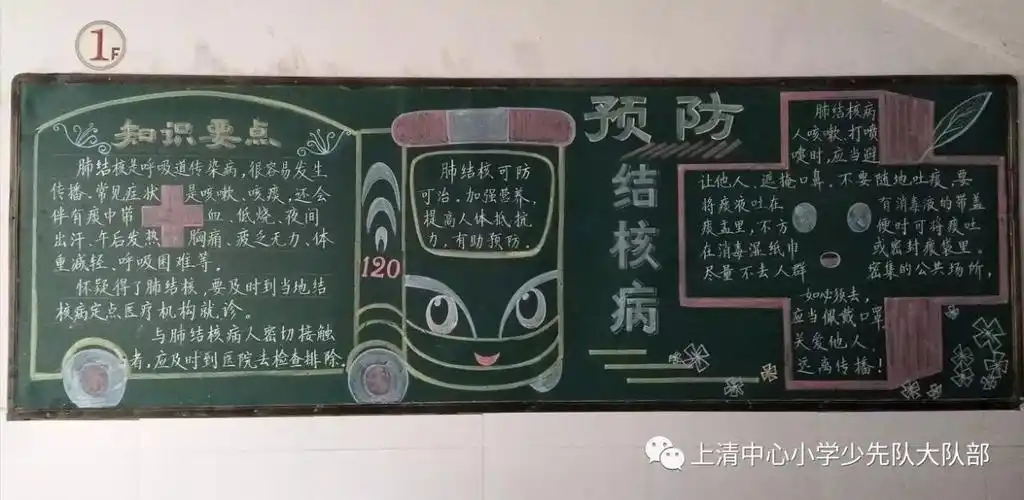 1F
知识要点
肺结核是呼吸道传染病,很容易发生
传播。常见症状是咳嗽、咳痰,还会
伴有痰中带血、低烧、夜间
出汗、午后发热、胸痛、疲乏无力、体
重减轻、呼吸困难等。
怀疑得了肺结核,要及时到当地结
核病定点医疗机构就诊。
与肺结核病人密切接触
者,应及时到医院去检查排除。
120
肺结核可防
可治。加强营养,
提高人体抵抗
力,有助预防。
预防
结核病
肺结核病
人咳嗽、打喷
嚏时,应当避
让他人、遮掩口鼻。不要随地吐痰,要
将痰液吐在有消毒液的带盖
痰盂里,不方便时可将痰吐
在消毒湿纸巾或密封痰袋里。
尽量不去人群密集的公共场所,
如必须去,
应当佩戴口罩。
关爱他人
远离传播!
上清中心小学少先队大队部